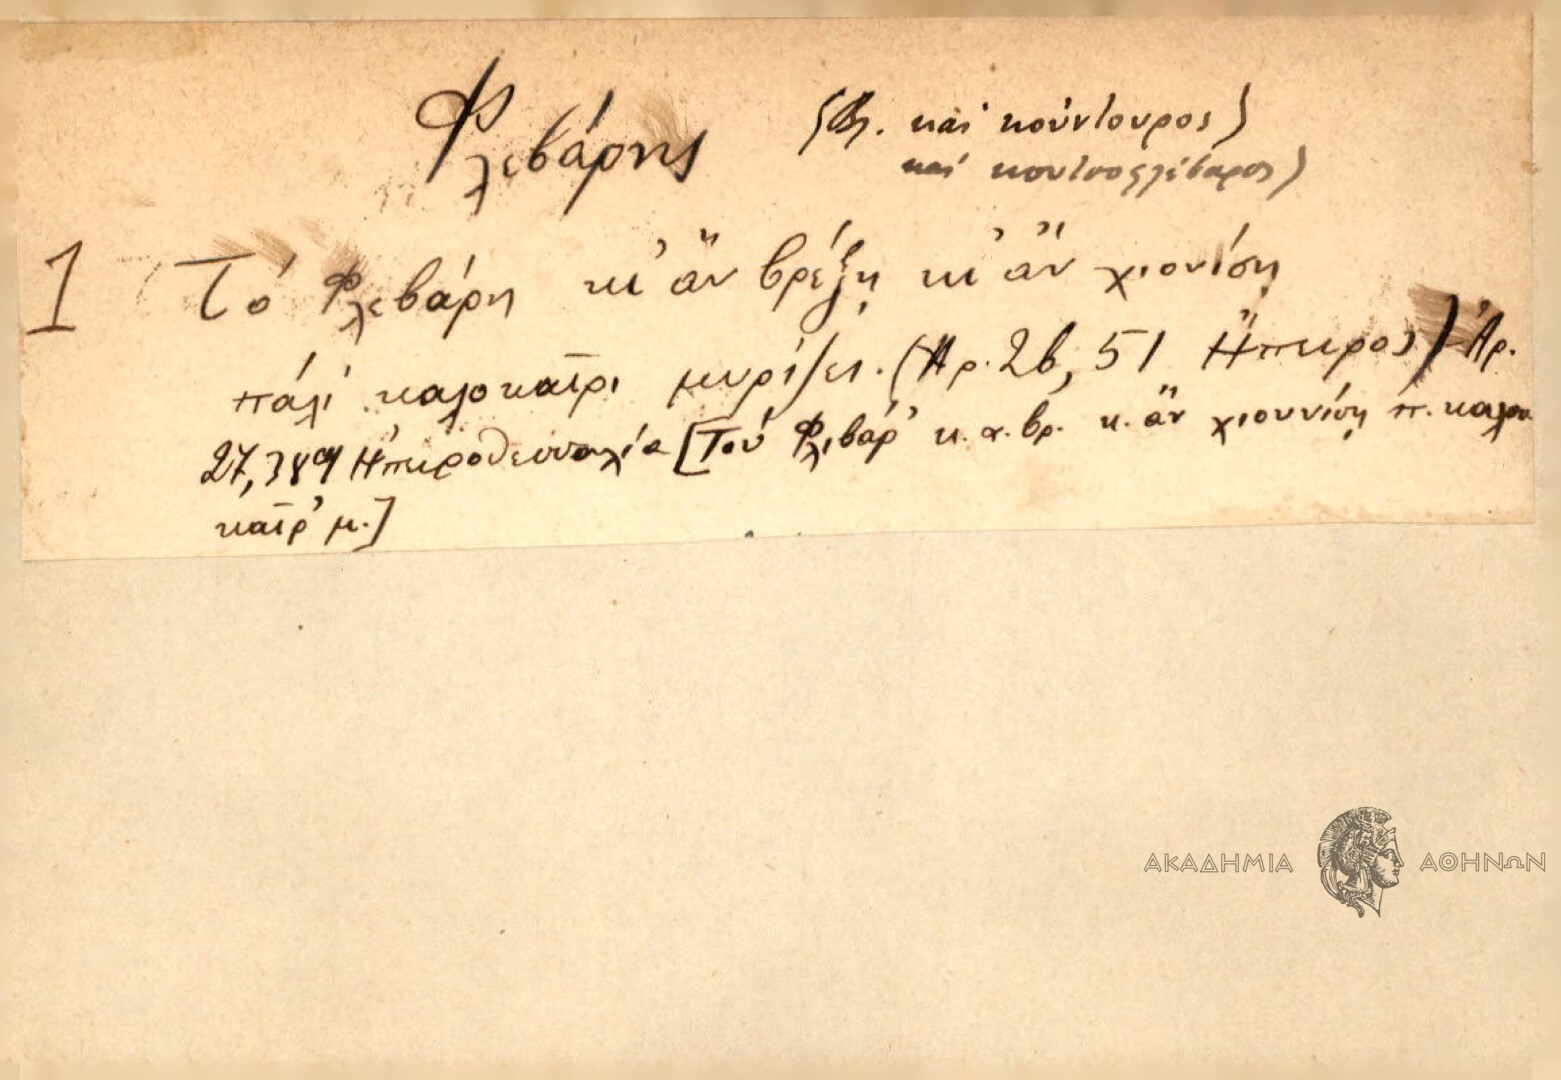 Φλεβάρης (Βλ. καὶ κούντουρος)
καὶ κουτσοφλέβαρος)
1 Τὸ Φλεβάρη κι' ἂν βρέξῃ κι' ἂν χιονίσῃ
πάλι καλοκαῖρι μυρίζει. (Ἀρ. 26, 51 Ἤπειρος) Ἀρ.
27, Ἠπειροθεσσαλία [Τοὺ Φλιβάρ' κ. ἀ. βρ. κ. ἂν χιουνίσῃ π. καλου
καῖρ' μ.]
ΑΚΑΔΗΜΙΑ ΑΘΗΝΩΝ